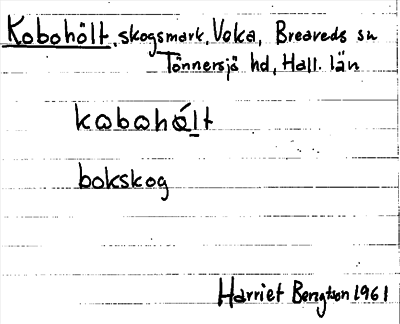 Kobohólt, skogsmark, Veka, Breareds sn
Tönnersjö hd, Hall. län
kɷbɷhólt
bokskog
Harriet Bengtson 1961